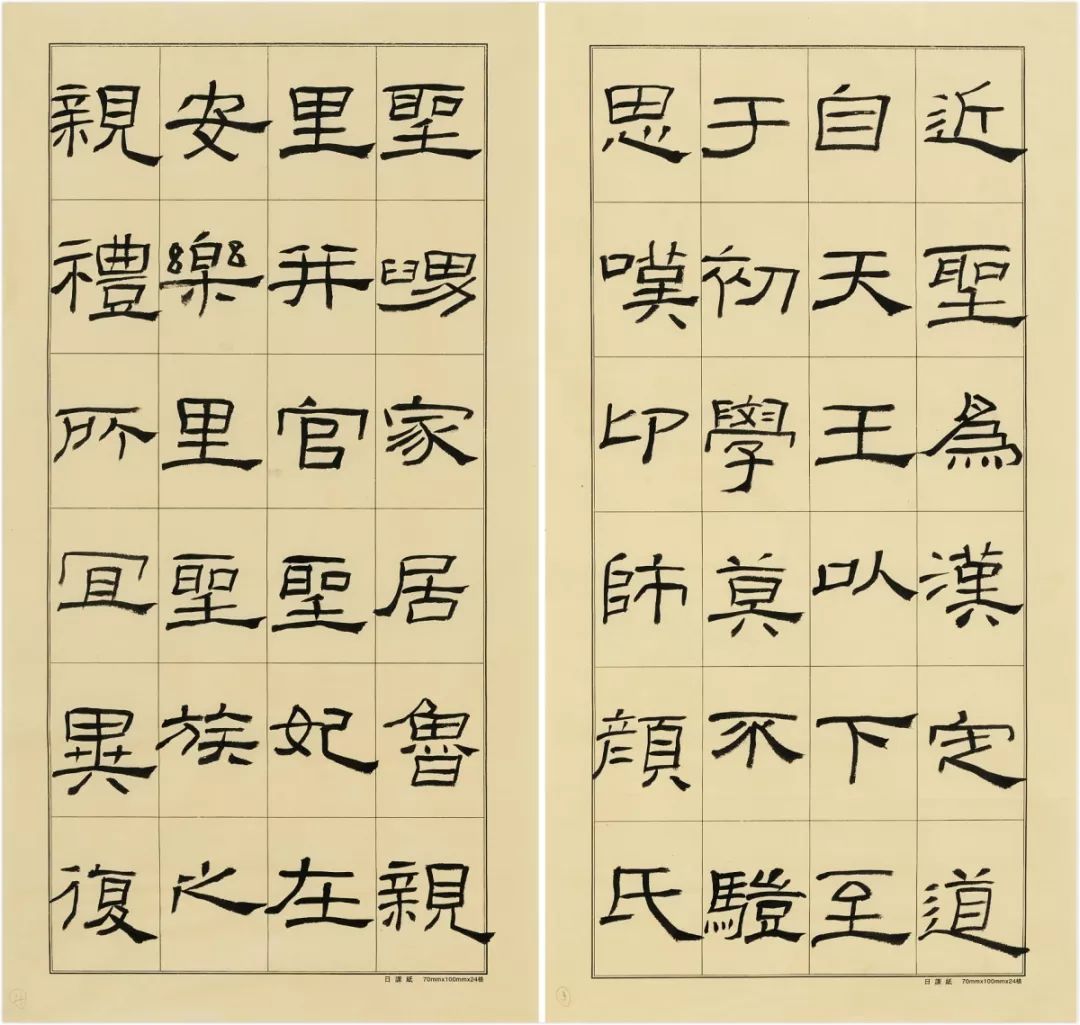 近聖爲漢定道
自天王以下至
于初學莫不驥
思嘆卬師顏氏
日課紙 70mmx100mmx24格
3
聖舅家居魯親
里并官聖妃在
安樂里聖族之
親禮所宜異復
日課紙 70mmx100mmx24格